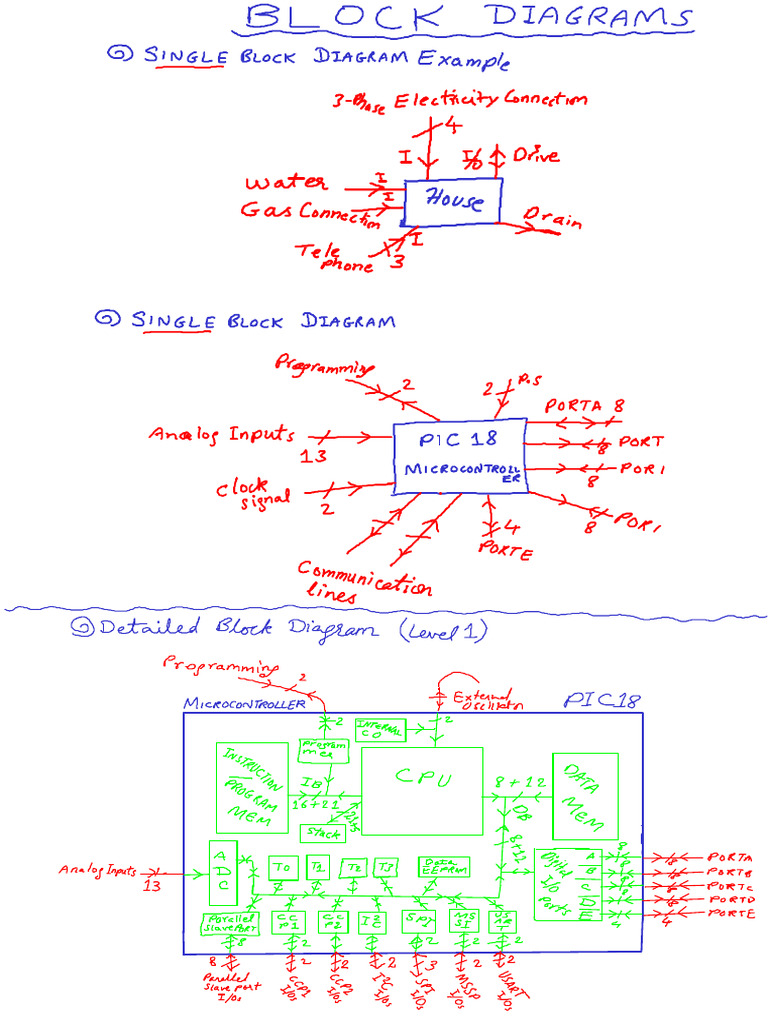 BLOCK DIAGRAMS
SINGLE BLOCK DIAGRAM Example
3-Phase Electricity Connection
4
I
I/O
Drive
Water
I
House
Gas Connection
I
Drain
Telephone
3
I
SINGLE BLOCK DIAGRAM
Programming
2
2
P.S
PORTA 8
Analog Inputs
13
PIC 18
MICROCONTROLLER
8
PORT
8
PORI
Clock
signal
2
8
PORI
4
PORTE
Communication
lines
Detailed Block Diagram (Level 1)
Programming
2
External
Oscillator
MICROCONTROLLER
PIC18
2
INTERNAL
CO
2
Programmer
INSTRUCTION
PROGRAM
MEM
IB
16+21
CPU
8+12
DB
DATA
MEM
Stack
8+12
ADC
Analog Inputs
13
T0
T1
T2
T3
Data
EEPROM
Digital
I/O
Ports
A
8
8
PORTA
B
8
8
PORTB
C
8
8
PORTC
D
8
8
PORTD
E
4
4
PORTE
Parallel
Slave PORT
CCP1
CCP2
I2C
SPI
MSSI
USRT
8
2
2
2
2
2
2
8
2
2
2
3
2
2
Parallel
Slave port
I/Os
CCP1
I/Os
CCP2
I/Os
I2C
I/Os
SPI
I/Os
MSSP
I/Os
USART
I/Os